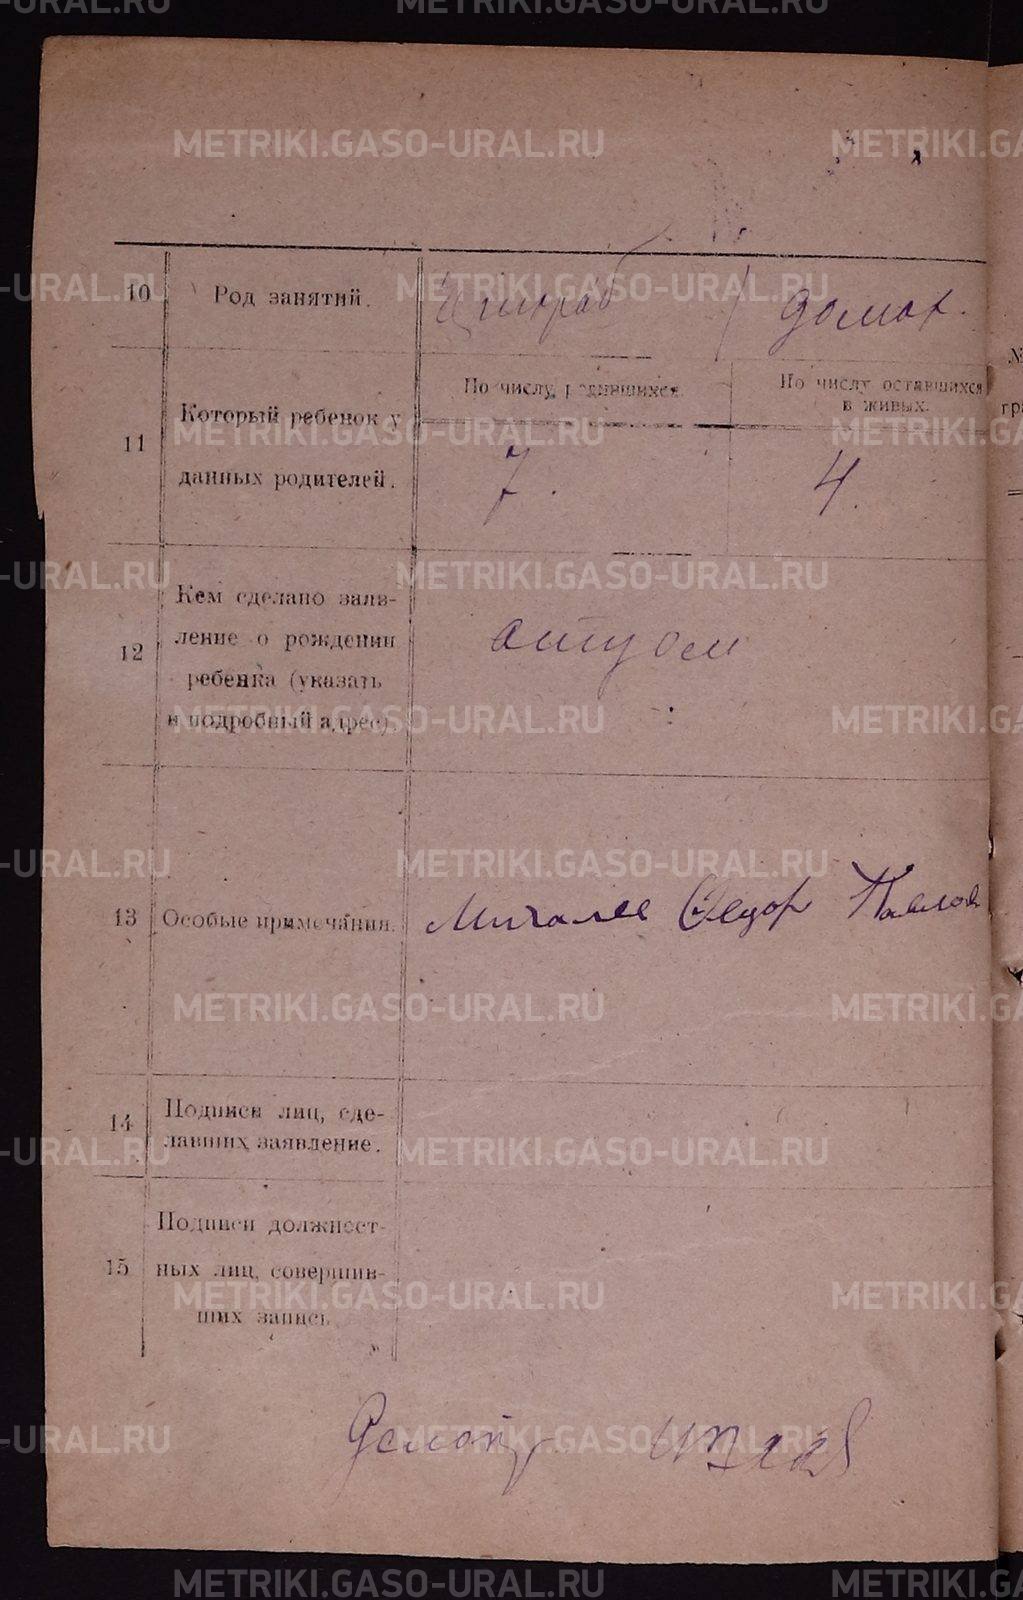 METRIKI.GASO-URAL.RU
10 Род занятий. домох.
11 Который ребенок у данных родителей.
По числу родившихся. По числу оставшихся в живых.
7. 4.
12 Кем сделано заяв-
ление о рождении
ребенка (указать
и подробный адрес)
отцом
13 Особые примечания. Федор Павлов
14 Подписи лиц, сде-
лавших заявление.
15 Подписи должност-
ных лиц, совершив-
ших запись